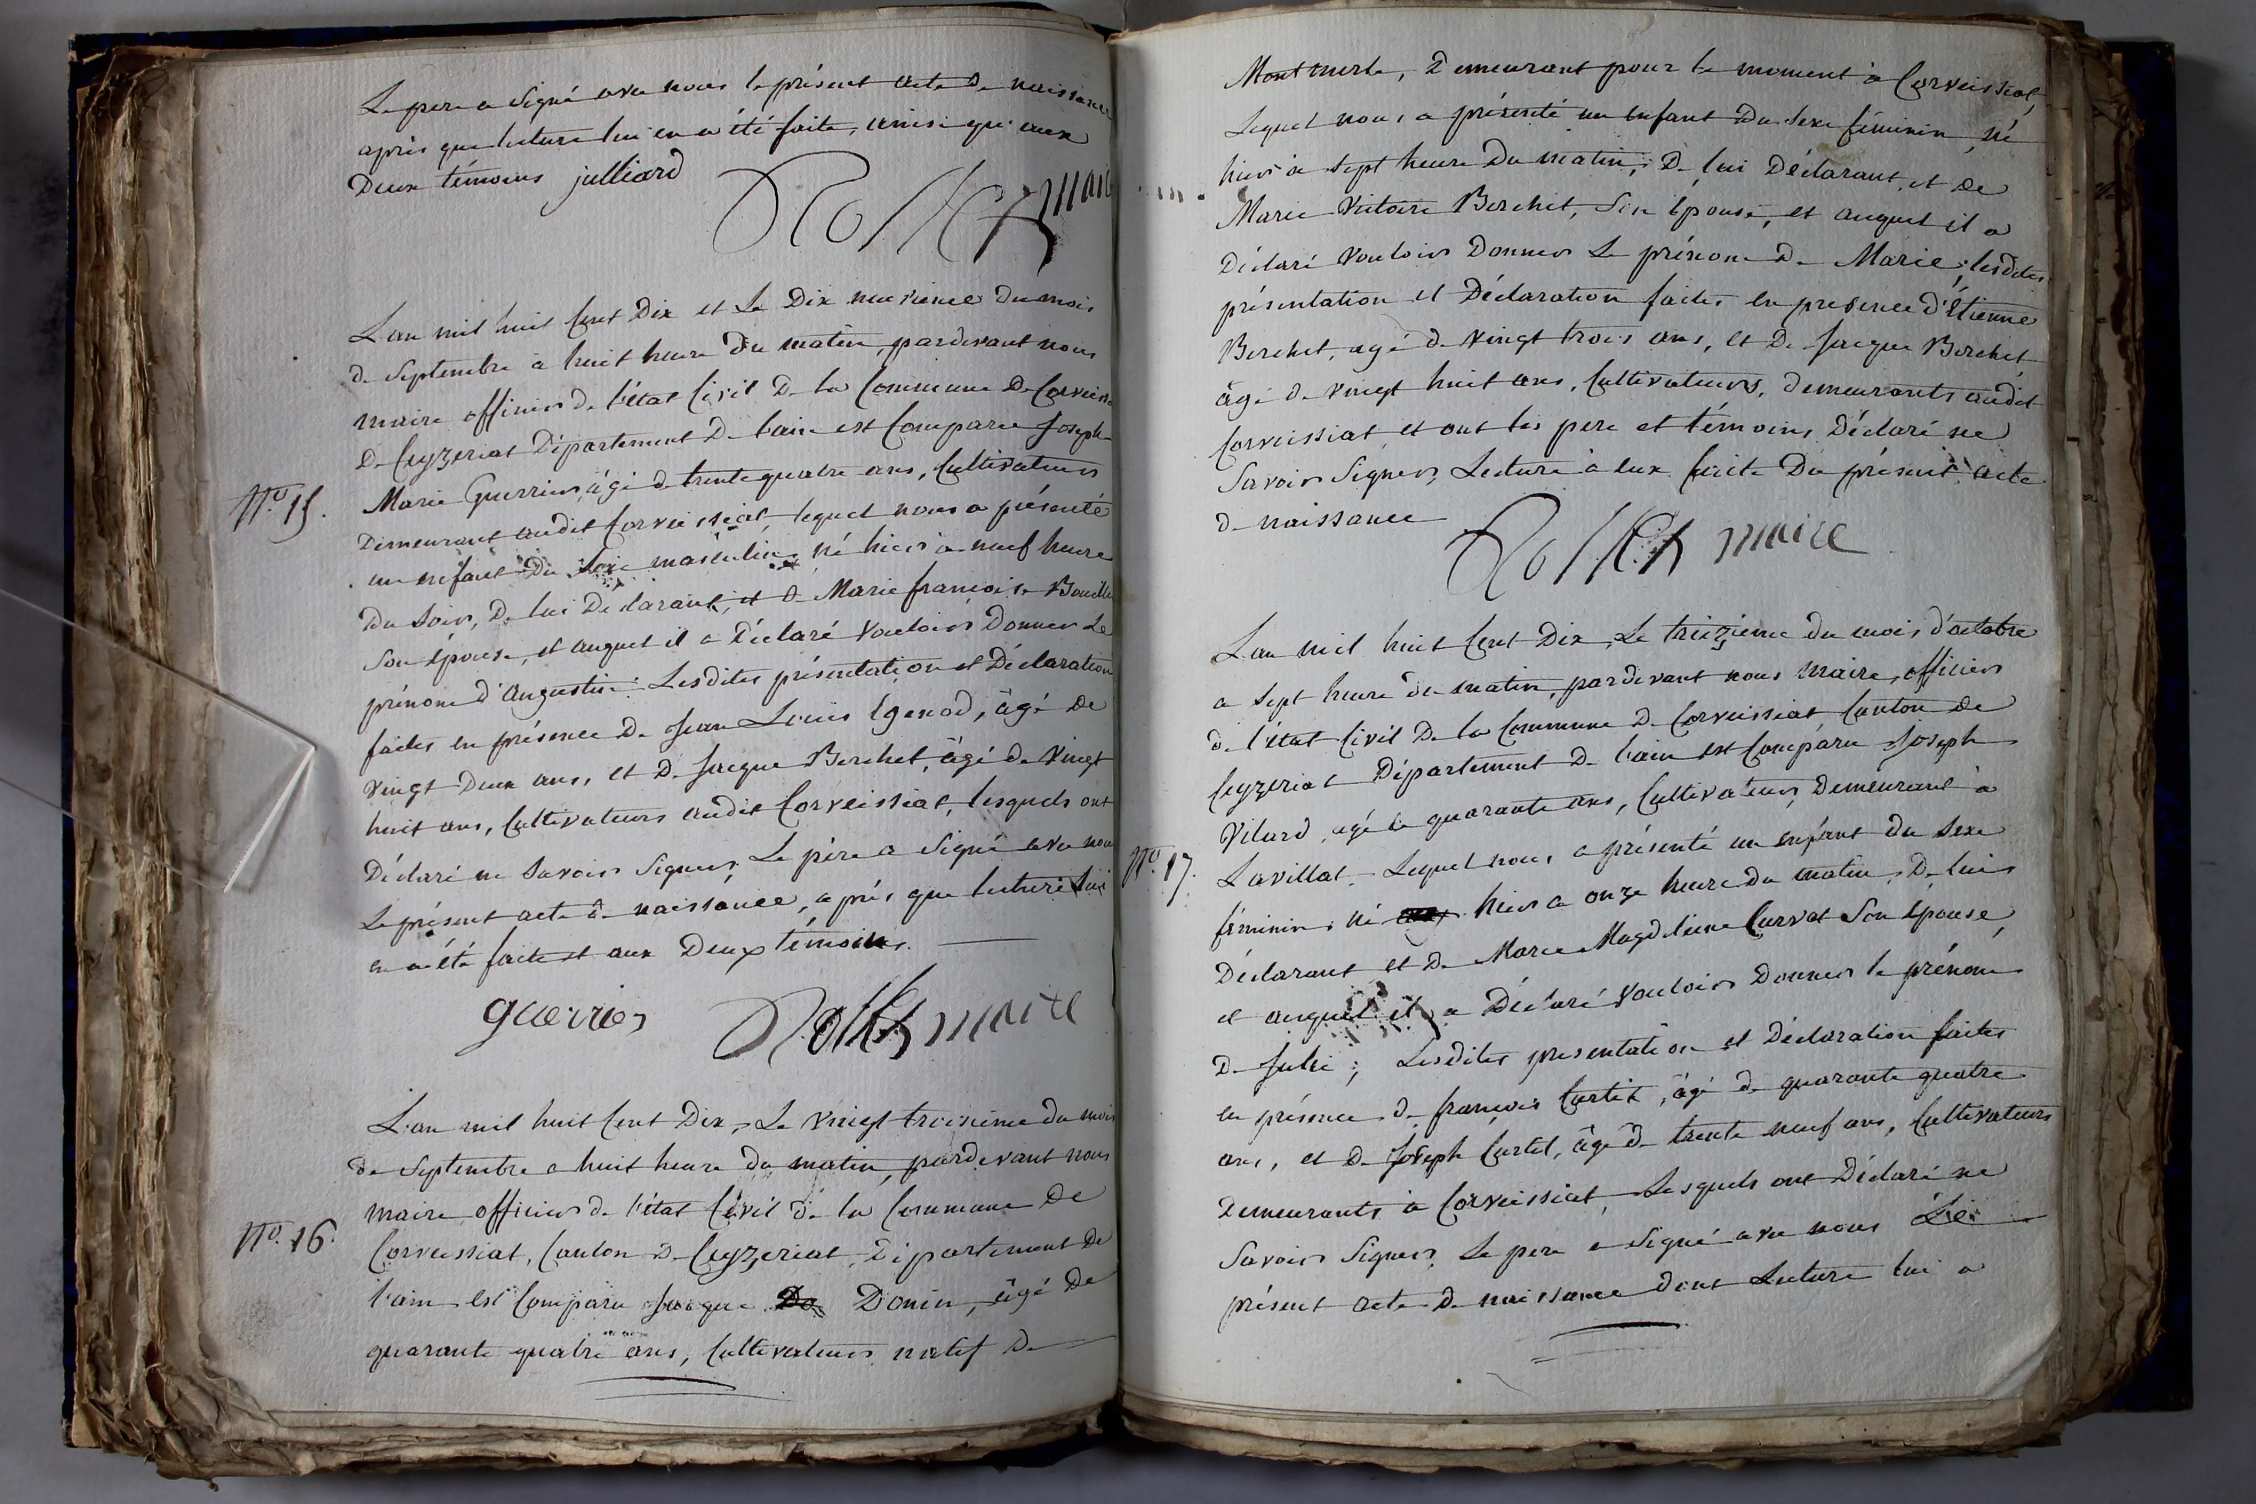 Le pere a signé avec nous le présent acte de naissance
après que lecture lui en a été faite, ainsi qu'aux
Deux témoins julliard
maire
L'an mil huit Cent Dix et Le Dix neuvieme du mois
de Septembre à huit heure Du matin, pardevant nous
maire officier de l'état Civil De la Commune De Corveissiat
De Ceyzeriat Département De l'ain est Comparu Joseph
N.o 15.
Marie Guerrier, âgé de trente quatre ans, Cultivateur
Demeurant audit Corveissiat, lequel nous a présenté
un enfant Du Sexe masculin né hier à neuf heure
Du Soir, De lui Declarant, et de Marie françoise
Son épouse, et auquel il a Déclaré Vouloir Donner Le
prénom d'Augustin : Lesdites présentation et Déclaration
faites en présence De Jean Louis Genod, âgé de
Vingt Deux ans, et De Jacque Berchet, âgé de Vingt
huit ans, Cultivateurs audit Corveissiat, lesquels ont
Déclaré ne Savoir Signer, Le père a Signé avec nous
Le présent acte de naissance, après que lecture lui
en a été faite et aux Deux témoins.
guerrier maire
L'an mil huit Cent Dix, Le Vingt troisieme du mois
de Septembre a huit heure du matin, pardevant nous
maire officier de l'état Civil de la Commune De
N.o 16.
Corveissiat, Canton De Ceyzeriat, Département De
l'ain est Comparu Jacque Donin, âgé De
quarante quatre ans, Cultivateur natif De
Montmerle, Demeurant pour le moment à Corveissiat,
Lequel nous a présenté un enfant Du Sexe féminin, né
hier à sept heure Du matin, De lui Déclarant, et De
Marie Victoire Berchet, Son épouse, et auquel il a
Déclaré Vouloir Donner Le prénom De Marie ; lesdites
présentation et Déclaration faites en presence d'Étienne
Berchet, agé de Vingt trois ans, et De Jacque Berchet,
âgé de vingt huit ans, Cultivateurs, demeurants audit
Corveissiat et ont les pere et témoins Déclaré ne
Savoir Signer, Lecture à eux faite Du présent acte
de naissance
maire
L'an mil huit Cent Dix, Le treizieme du mois d'octobre
a sept heure du matin, pardevant nous Maire, officier
de l'état Civil De la Commune De Corveissiat Canton de
Ceyzeriat Département De l'ain est Comparu Joseph
Vilard, agé de quarante ans, Cultivateur, Demeurant à
N.o 17.
Lavillat. Lequel nous a présenté un enfant du Sexe
féminin, né hier a onze heure du matin, De lui
Déclarant et De Marie Magdeleine Curvat Son épouse,
et auquel il a Déclaré Vouloir Donner le prénom
De Julie ; Lesdites presentation et Déclaration faites
en présence de françois Curtet, âgé de quarante quatre
ans, et De Joseph Curtet, âgé de trente neuf ans, Cultivateurs
Demeurants à Corveissiat, Lesquels ont Déclaré ne
Savoir Signer. Le pere a Signé avec nous Le
présent acte de naissance dont Lecture lui a